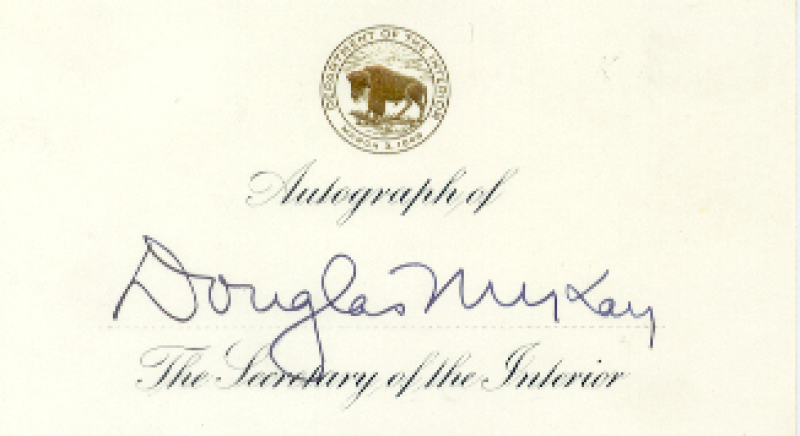 DEPARTMENT OF THE INTERIOR
MARCH 3, 1849
Autograph of
Douglas McKay
The Secretary of the Interior